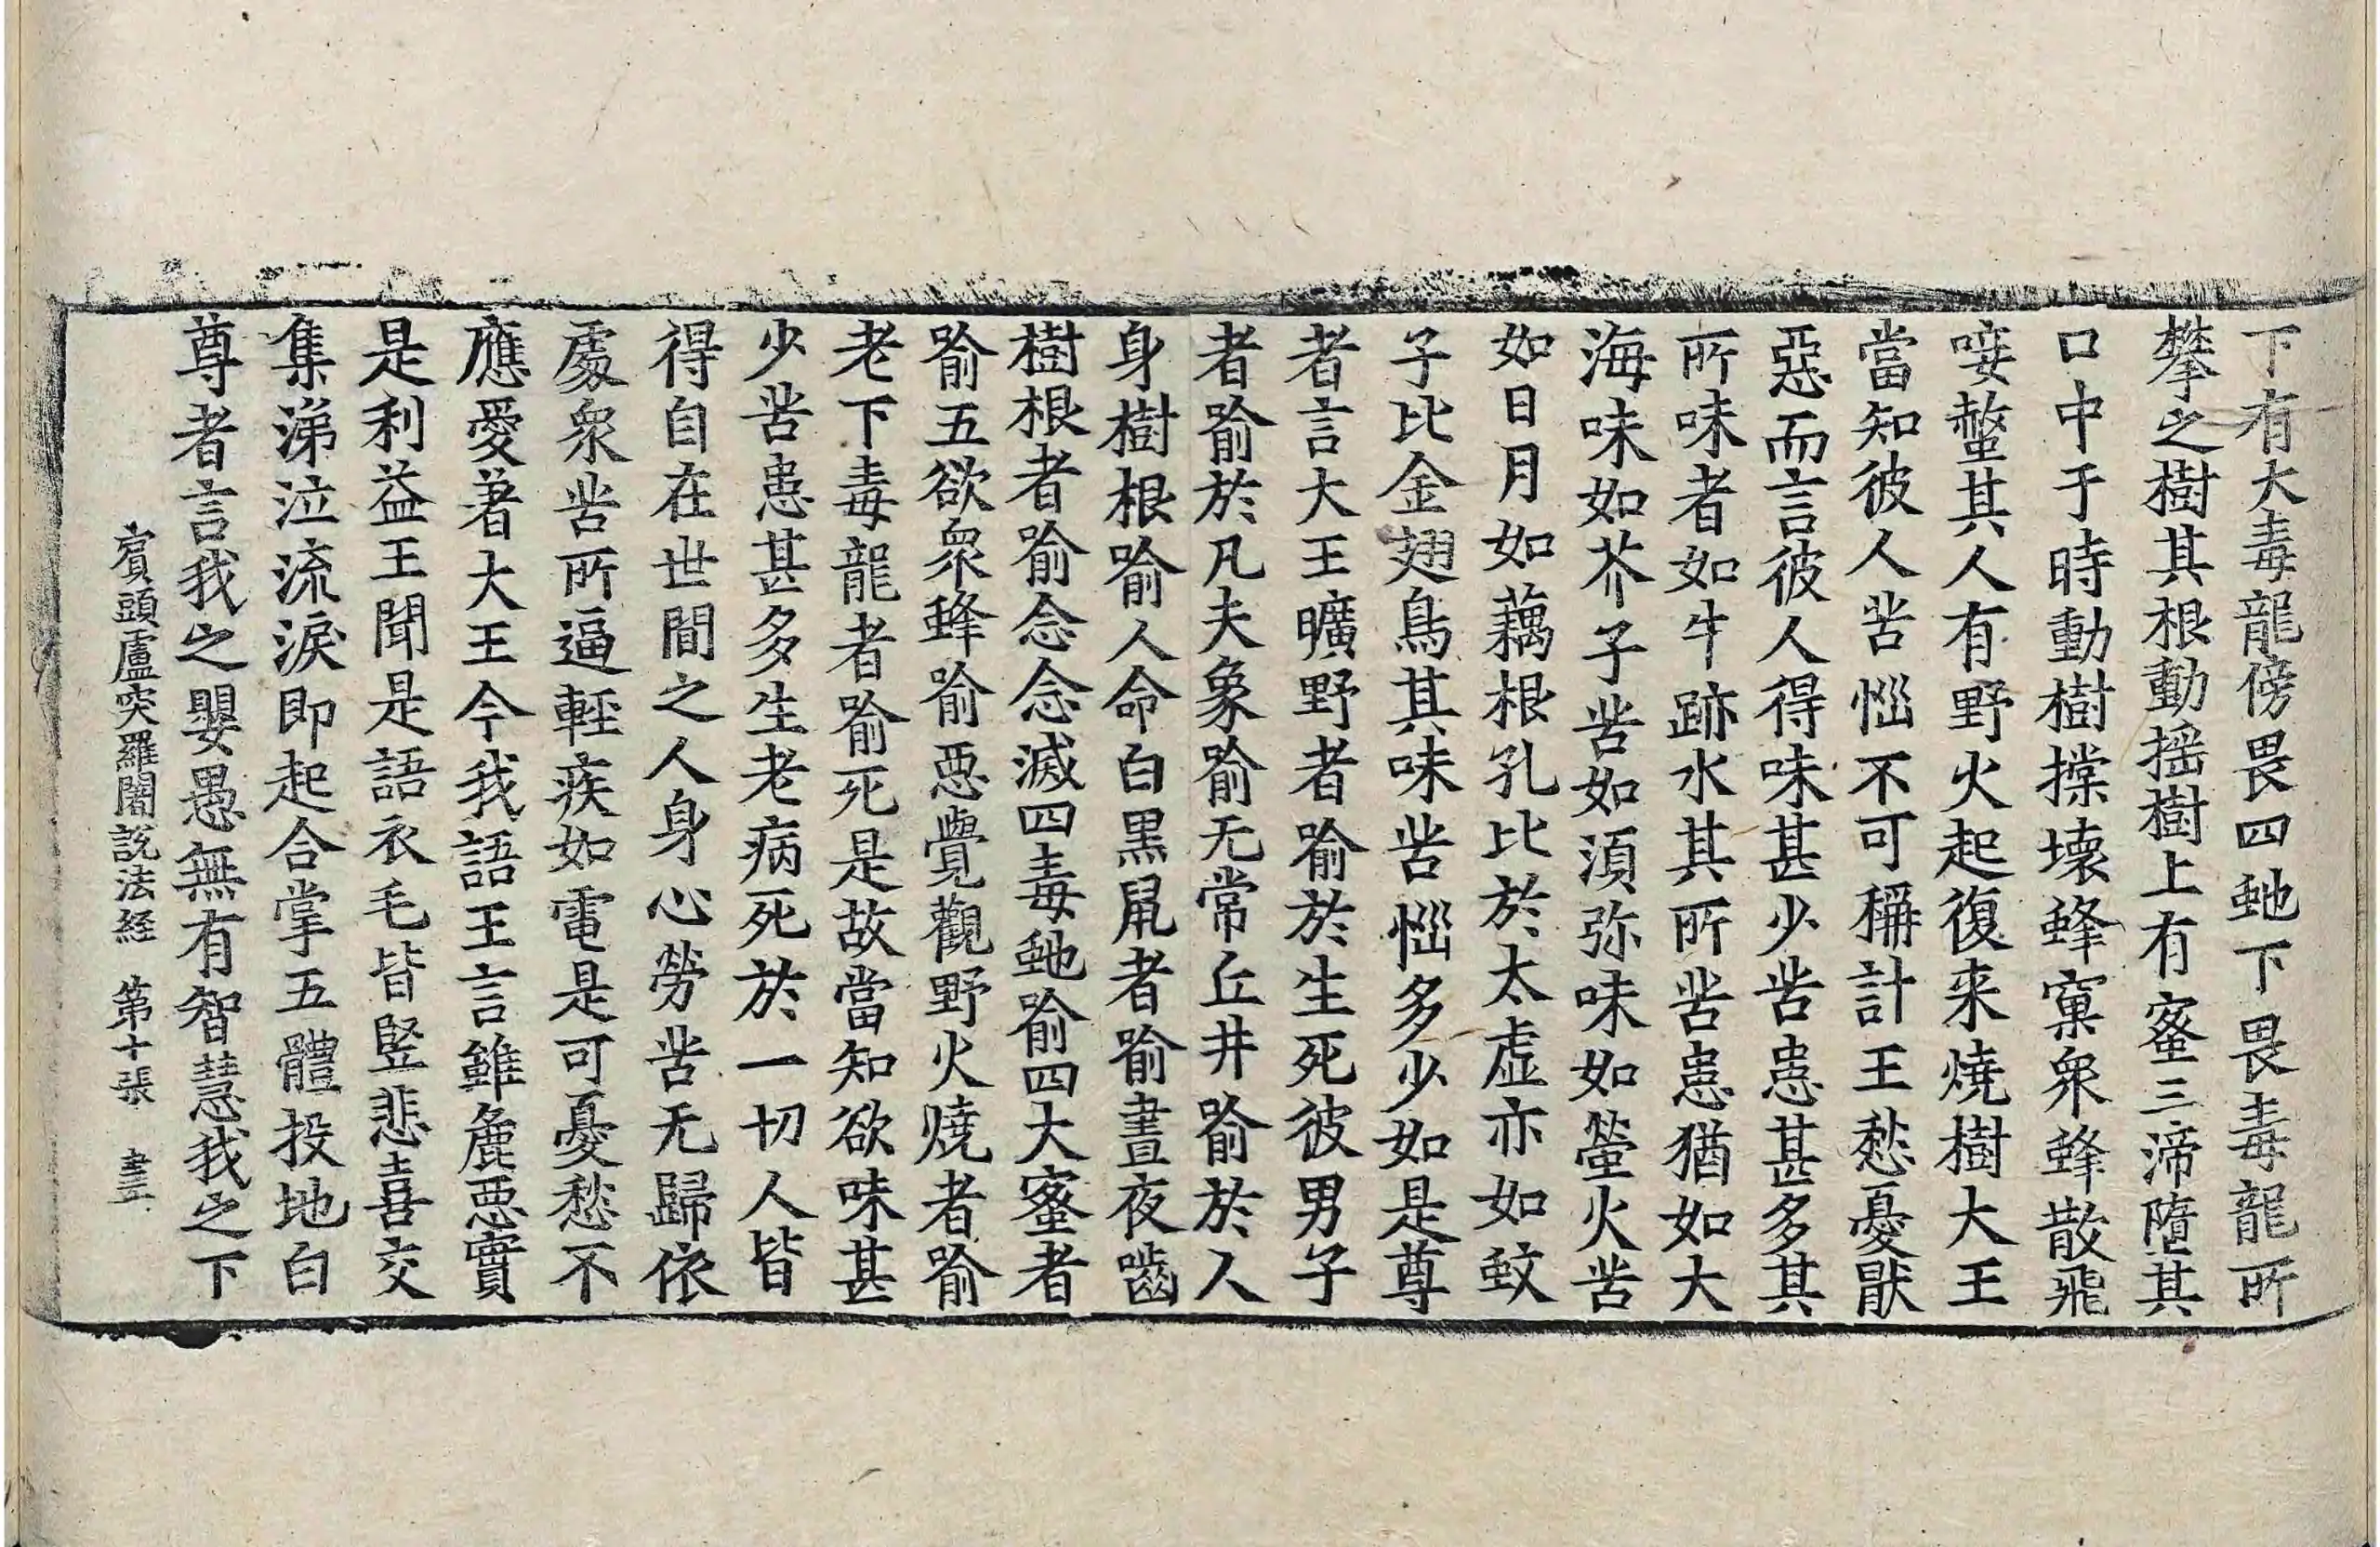 下有大毒龍傍畏四虵下畏毒龍所
攀之樹其根動搖樹上有蜜三渧墮其
口中于時動樹摚壞蜂窠衆蜂散飛
唼螫其人有野火起復来燒樹大王
當知彼人苦惱不可稱計王愁憂猒
惡而言彼人得味甚少苦患甚多其
所味者如牛跡水其所苦患猶如大
海味如芥子苦如湏弥味如螢火苦
如日月如藕根孔比於太虛亦如蚊
子比金翅鳥其味苦惱多少如是尊
者言大王曠野者喻於生死彼男子
者喻於凡夫象喻无常丘井喻於人
身樹根喻人命白黒鼠者喻晝夜嚙
樹根者喻念念滅四毒虵喻四大蜜者
喻五欲衆蜂喻惡覺觀野火燒者喻
老下毒龍者喻死是故當知欲味甚
少苦患甚多生老病死於一切人皆
得自在世間之人身心勞苦无歸依
處衆苦所逼輕疾如電是可憂愁不
應愛著大王今我語王言雖麁惡實
是利益王聞是語衣毛皆竪悲喜交
集涕泣流淚即起合掌五體投地白
尊者言我之嬰愚無有智慧我之下
賓頭盧突羅闍說法経 第十張 畫